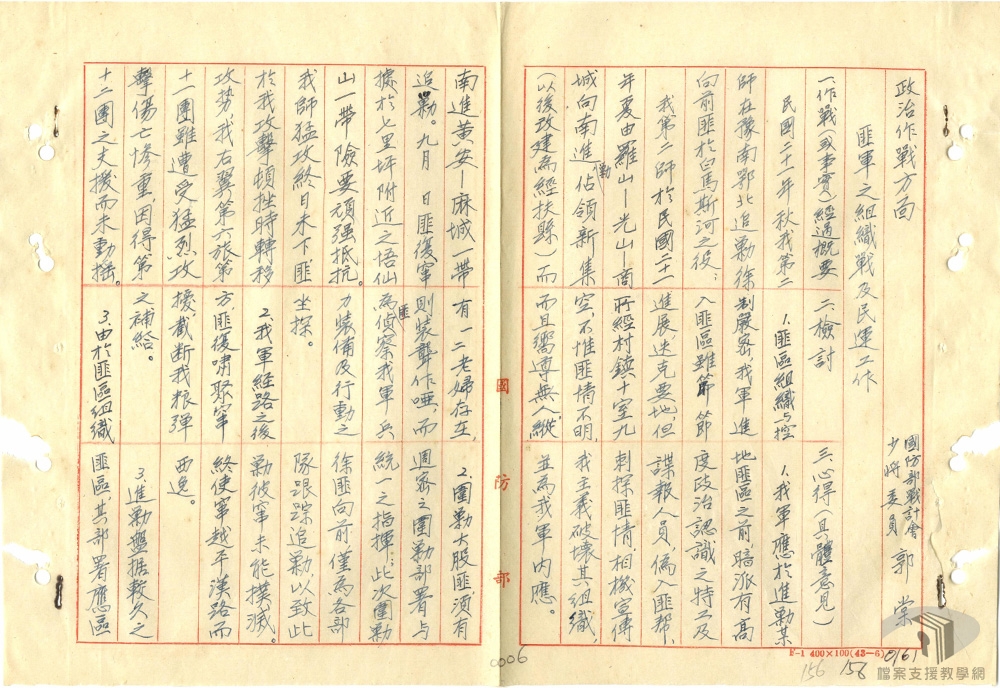 政治作戰方面
匪軍之組織戰及民運工作
國防部戰計會
少將委員 郭 棠
一、作戰(或事實)經過概要
民國二十一年秋我第二
師在豫南鄂北追勦徐
向前匪於白馬斯河之役：
我第二師於民國二十一
年夏由羅山—光山—商
城向南進勦佔領新集
(以後改建為經扶縣)而
南進黃安—麻城一帶
追勦。九月 日匪復竄
據於七里坪附近之悟仙
山一帶險要頑強抵抗
我師猛攻終日未下匪
於我攻擊頓挫時轉移
攻勢，我右翼第六旅第
十一團雖遭受猛烈攻
擊傷亡慘重，因得第
十二團之支援而未動搖。
二、檢討
1.匪區組織與控
制嚴密，我軍進
入匪區雖節節
進展，迭克要地，但
所經村鎮十室九
空，不惟匪情不明，
而且嚮導無人，縱
有一二老婦存在，
則裝聾作啞，而
為匪偵察我軍兵
力裝備及行動之
坐探。
2.我軍經路之後
方，匪復嘯聚竄
擾，截斷我粮彈
之補給。
3.由於匪區組織
三、心得(具體意見)
1.我軍應於進勦某
地匪區之前暗派有高
度政治認識之特工及
諜報人員，偽入匪幫，
刺探匪情，相機宣傳
我主義破壞其組織，
並為我軍內應。
2.圍勦大股匪須有
週密之圍勦部署與
統一之指揮：此次圍勦
徐匪向前僅為各部
隊跟踪追勦，以致此
勦彼竄未能撲滅。
終使竄越平漢路而
西逸。
3.進勦盤据較久之
匪區，其部署應區
國防部
F-1 400×100(43-6)
0161
0006
156
156
檔案支援教學網